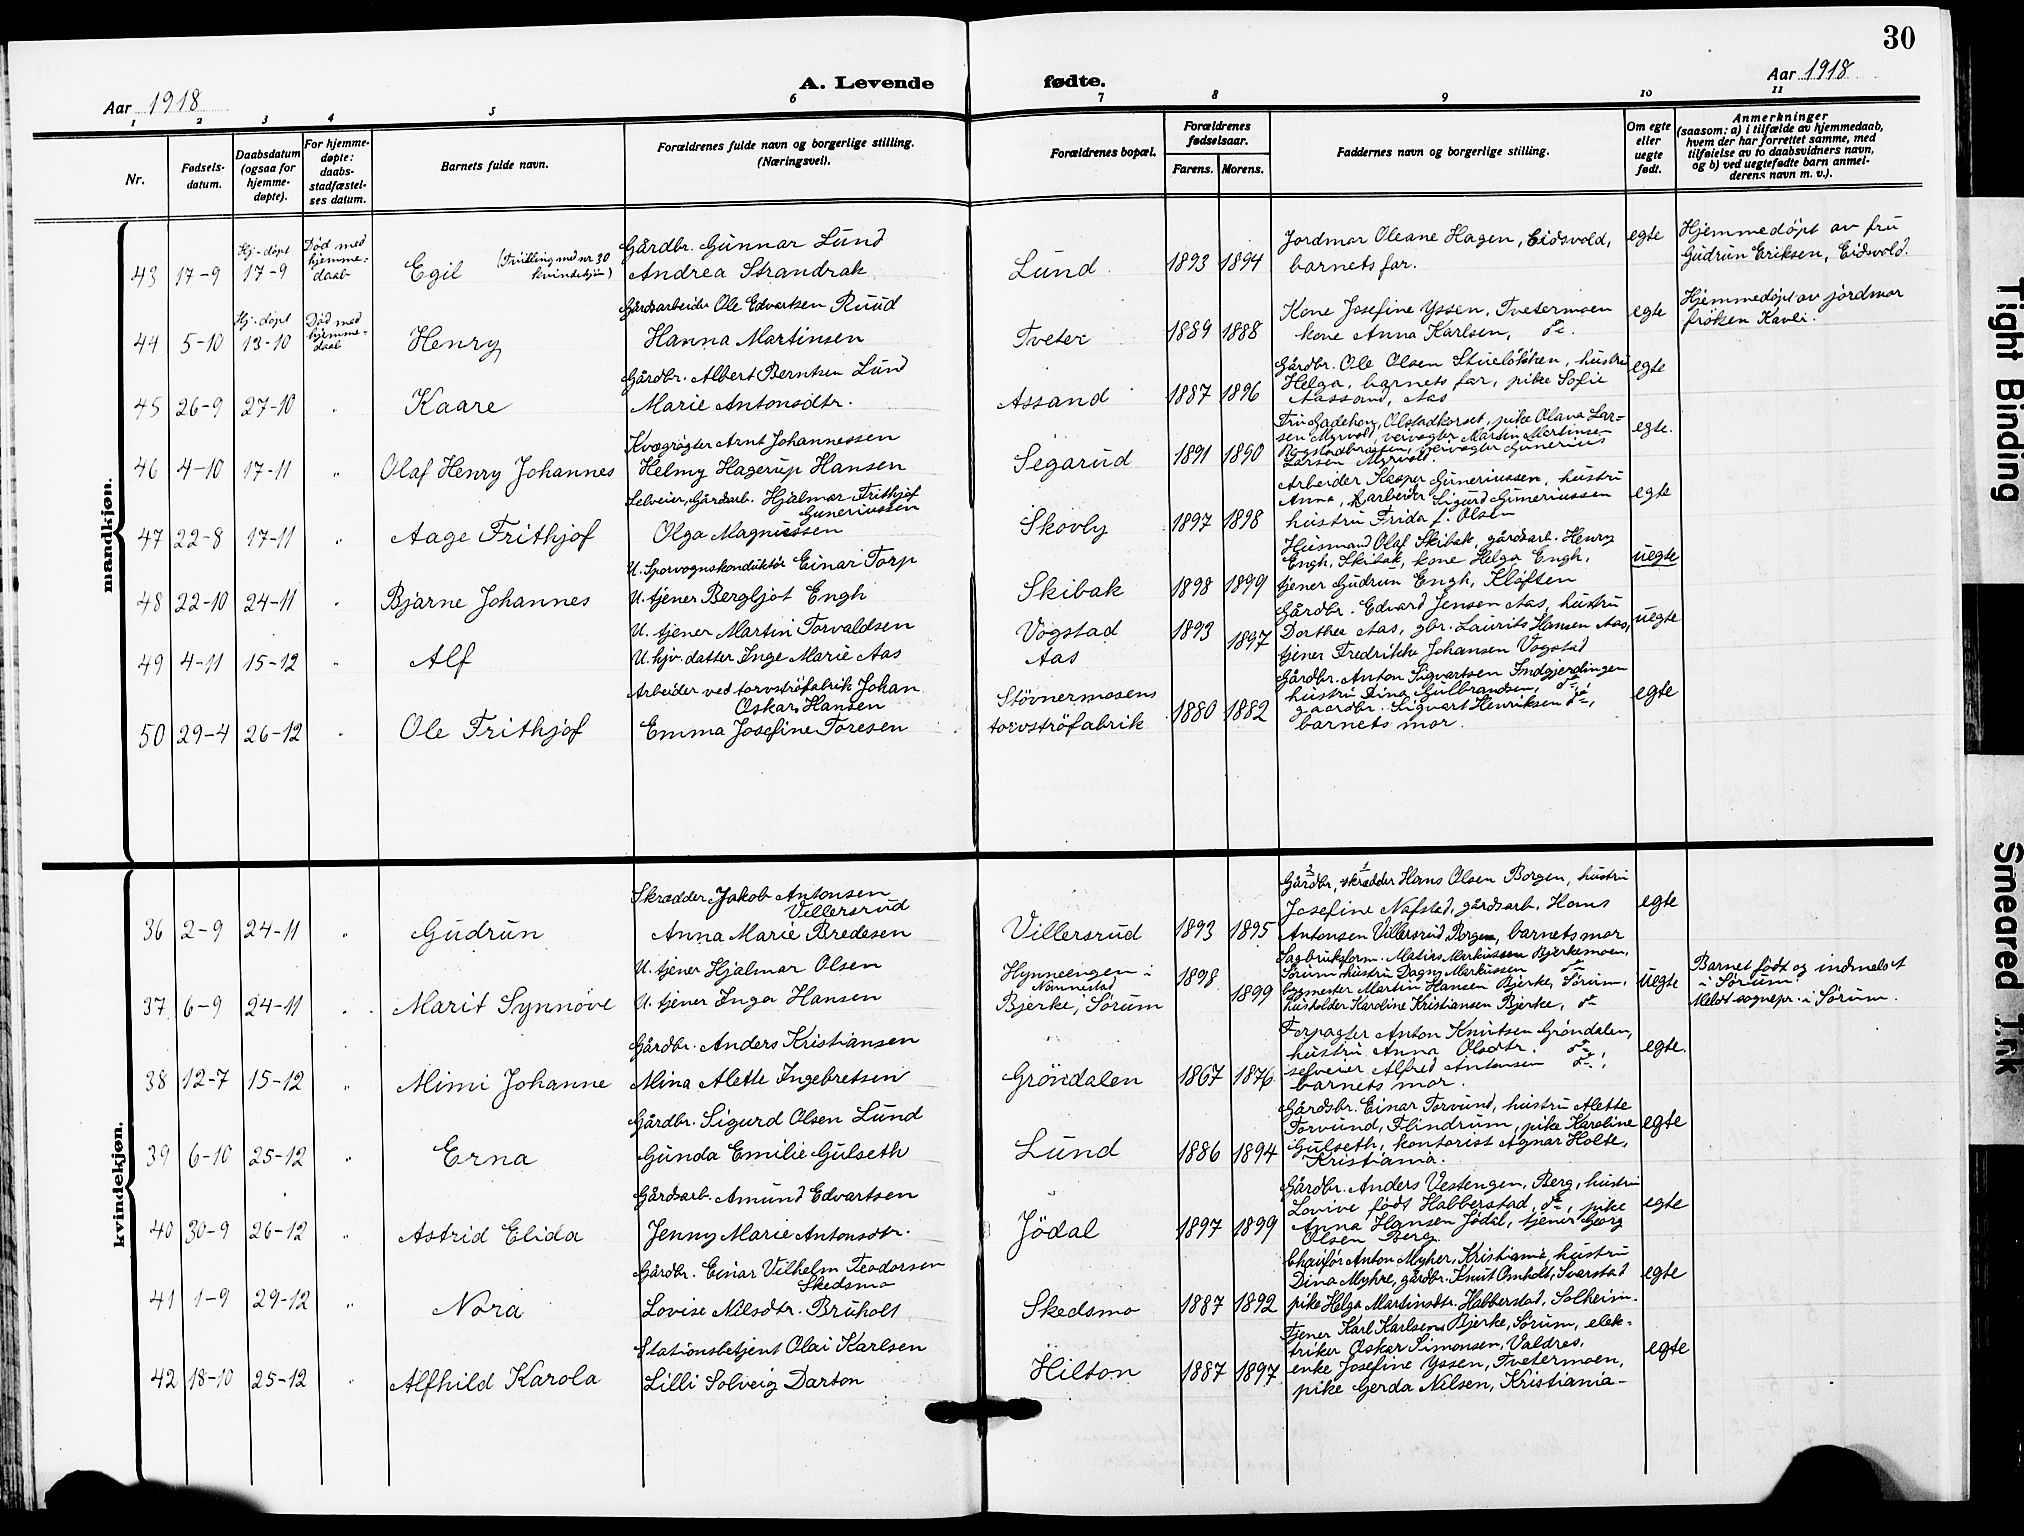 30
Aar 1918
A. Levende
fødte.
Aar 1918
1 2 3 4 5 6 7 8 9 10 11
Nr.
Fødsels-
datum.
Daabsdatum
(ogsaa for
hjemme-
døpte).
For hjemme-
døpte:
daabs-
stadfæstel-
ses datum.
Barnets fulde navn.
Forældrenes fulde navn og borgerlige stilling.
(Næringsvei).
Forældrenes bopæl.
Forældrenes
fødselsaar.
Farens. Morens.
Faddernes navn og borgerlige stilling.
Om egte
eller
uegte
født.
Anmerkninger
(saasom: a) i tilfælde av hjemmedaab,
hvem der har forrettet samme, med
tilføielse av to daabsvidners navn,
og b) ved uegtefødte barn anmel-
derens navn m. v.).
mandkjøn.
43 17-9
Hj-døpt
17-9
Død med
hjemme-
daab
Egil
(Tvilling med nr 30
kvindekjøn)
Gårdbr. Gunnar Lund
Andrea Strandrak
Lund 1893 1894
Jordmor Oleane Hagen, Eidsvold,
barnets far.
egte
Hjemmedøpt av fru
Gudrun Eriksen, Eidsvold.
44 5-10
Hj-døpt
13-10
Død med
hjemme-
daab
Henry
Gårdsarbeider Ole Edvartsen Ruud
Hanna Martinsen
Tveter 1889 1888
Kone Josefine Yssen, Tvetermoen
kone Anna Karlsen, do.
egte
Hjemmedøpt av jordmor
frøken Kavli.
45 26-9 27-10 " Kaare
Gårdbr. Albert Berntsen Lund
Marie Antonsdtr.
Assand 1887 1896
Gårdbr. Ole Olsen Stueløkken, hustru
Helga, barnets far, pike Sofie
Aassand, Aas
egte
46 4-10 17-11 " Olaf Henry Johannes
Kvægrøgter Arnt Johannessen
Helmy Hagerup Hansen
Segarud 1891 1890
Fru Gadehong, Olstadkorset, pike Olava Lar-
sen Myrvold, vervogter Marten Martinsen
Rogstadbraaten, vervogter Gunerius
Larsen Myrvold.
egte.
47 22-8 17-11 " Aage Frithjof
Selveier, Gårdsarb. Hjalmar Frithjof
Guneriussen
Olga Magnussen
Skovly 1897 1898
Arbeider Kasper Guneriussen, hustru
Anna, arbeider Sigurd Guneriussen
hustru Frida f. Olsen
egte
48 22-10 24-11 " Bjarne Johannes
U. Sporvognskonduktør Einar Torp
U. tjener Bergljot Engh
Skibak 1898 1899
Husmand Olaf Skibak, gårdsarb. Henry
Engh, Skibak, kone Helga Engh,
tjener Gudrun Engh, Kløften
uegte
49 4-11 15-12 " Alf
U. tjener Martin Torvaldsen
U. hjv. datter Inge Marie Aas
Vogstad
Aas
1893 1897
Gårdbr. Edvard Jensen Aas, hustru
Dorthea Aas, gbr. Laurits Hansen Aas,
tjener Fredrikke Johansen Vogstad
uegte
50 29-4 26-12 " Ole Frithjof
Arbeider ved torvstrøfabrik Johan
Oskar Hansen
Emma Josefine Toresen
Støvnermosens
torvstrøfabrik
1880 1882
Gårdbr. Anton Sigvartsen Indgjerdingen
hustru Dina Gulbrandsen, do
gaardbr. Sigvart Henriksen do,
barnets mor.
egte
kvindekjøn.
36 2-9 24-11 " Gudrun
Skrædder Jakob Antonsen
Villersrud
Anna Marie Bredesen
Villersrud 1893 1895
Gårdbr, skrædder Hans Olsen Borgen, hustru
Josefine Nafstad, gårdsarb. Hans
Antonsen Villersrud Borgen, barnets mor
egte
37 6-9 24-11 " Marit Synnöve
U. tjener Hjalmar Olsen
U. tjener Inga Hansen
Hynneengen i
Nannestad
Bjerke, Sörum
1898 1899
Sagbruksform. Matias Markussen Bjerkemoen,
Sörum, hustru Dagny Markussen do
bygmester Martin Hansen Bjerke, Sörum,
husholder Karoline Kristiansen Bjerke, do
uegte
Barnet født og indmeldt
i Sörum.
Meldt sognepr. i Sörum.
38 12-7 15-12 " Mimi Johanne
Gårdbr. Anders Kristiansen
Mina Alette Ingebretsen
Gröndalen 1867 1876
Forpagter Anton Knutsen Gröndalen,
hustru Anna Olsdtr. do,
selveier Alfred Antonsen do,
barnets mor.
egte.
39 6-10 25-12 " Erna
Gårdbr. Sigurd Olsen Lund
Gunda Emilie Gulseth
Lund 1886 1894
Gårdsbr. Einar Torvund, hustru Alette
Torvund, Flindrum, pike Karoline
Gulseth, kontorist Agnar Holte,
Kristiania.
egte
40 30-9 26-12 " Astrid Elida
Gårdsarb. Amund Edvartsen
Jenny Marie Antonsdtr.
Jödal 1897 1899
Gårdbr. Anders Vestengen, Berg, hustru
Lovise født Habberstad, do, pike
Anna Hansen Jödal, tjener Georg
Olsen Berg.
egte
41 1-9 29-12 " Nora
Gårdbr. Einar Vilhelm Teodorsen
Skedsmo
Lovise Nilsdtr. Bruholt
Skedsmo 1887 1892
Chauffør Anton Myhrer, Kristiania, hustru
Dina Myhre, gårdbr. Knut Omholt, Svarstad
pike Helga Martinsdtr. Habberstad, Solheim.
egte
42 18-10 25-12 " Alfhild Karola
Stationsbetjent Olai Karlsen
Lilli Solveig Darton
Hilton 1887 1897
Tjener Karl Karlsen, Bjerke, Sörum, elek-
triker Oskar Simonsen, Valdres,
enke Josefine Yssen, Tvetermoen,
pike Gerda Nilsen, Kristiania
egte
Tight Binding
Smeared Ink